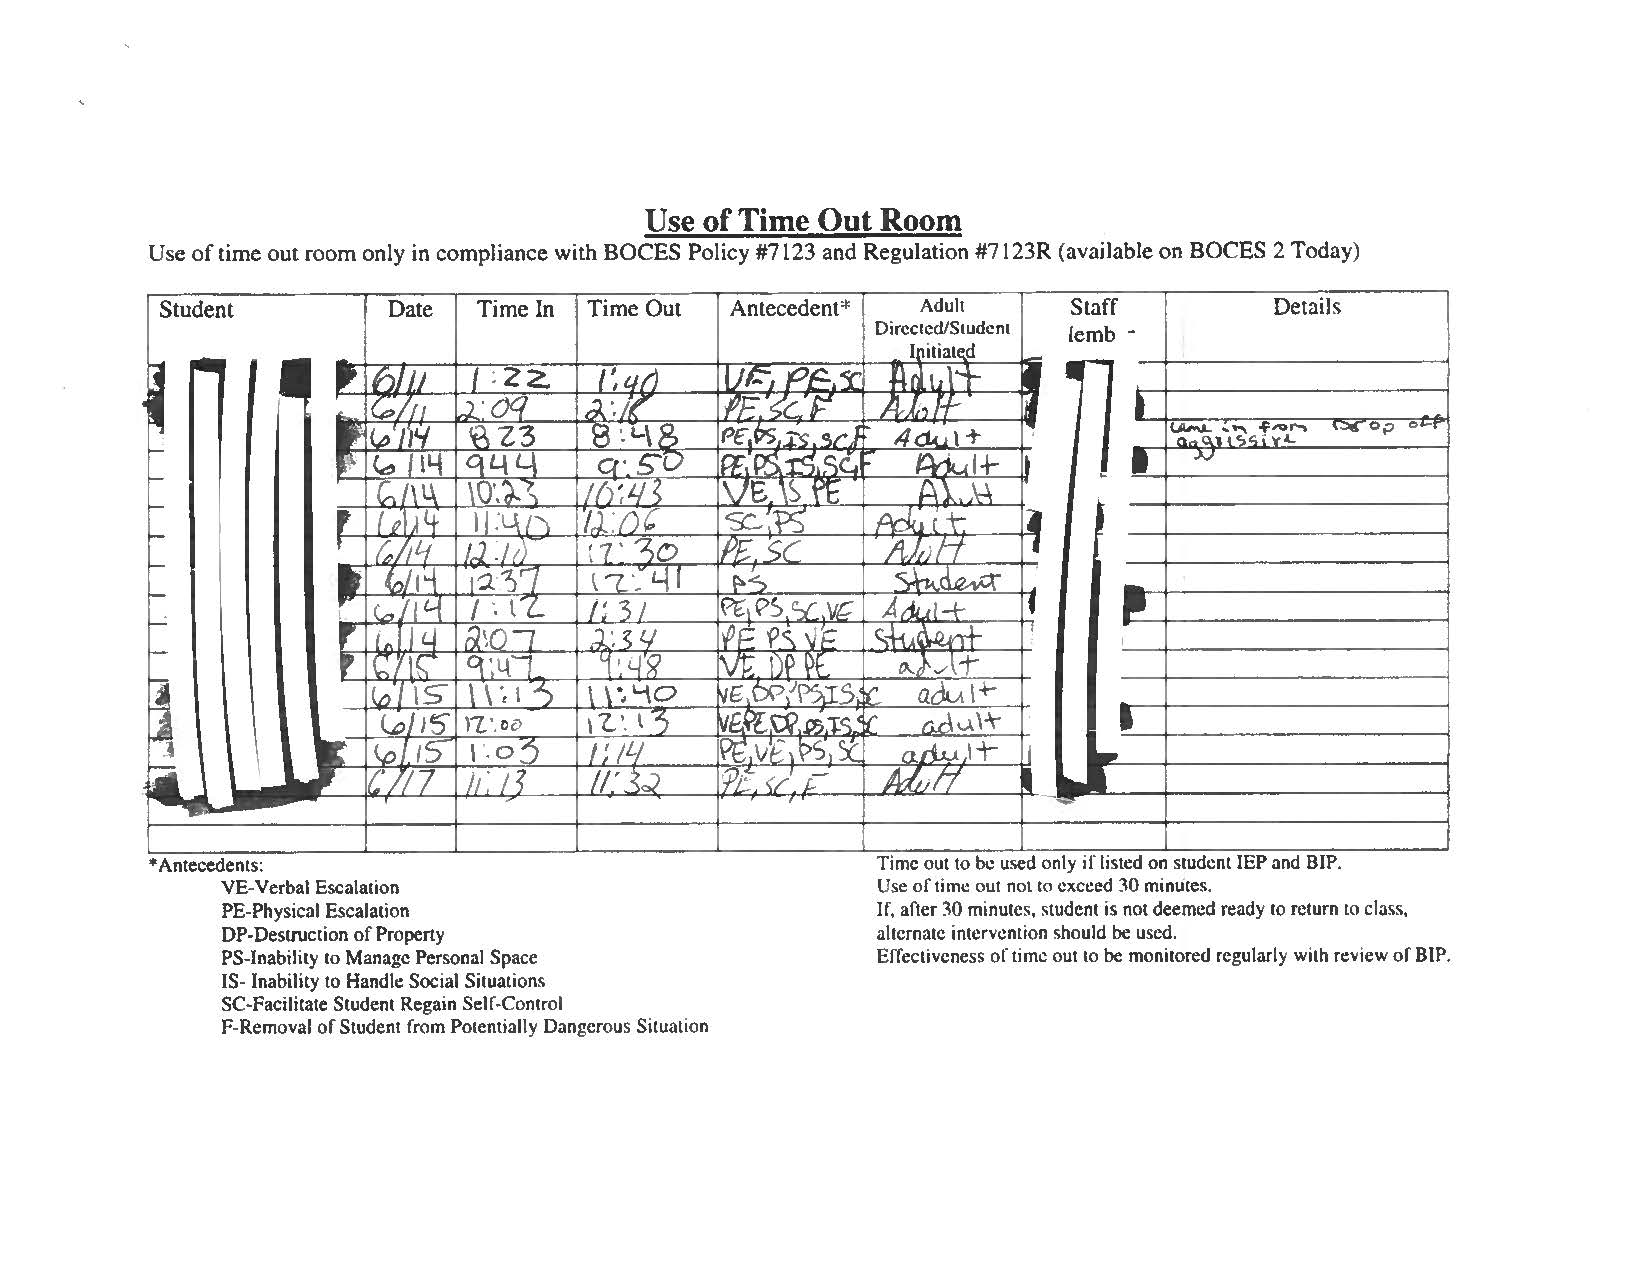 Use of Time Out Room
Use of time out room only in compliance with BOCES Policy #7123 and Regulation #7123R (available on BOCES 2 Today)
Student Date Time In Time Out Antecedent* Adult Directed/Student Initiated Staff lemb - Details
6/11 1:22 1:40 VE, PE, SC Adult
6/11 2:09 2:18 PE, SC, F Adult
6/14 8 23 8:48 PE, PS, IS, SC, F Adult came in from drop off aggressive
6/14 944 9:50 PE, PS, IS, SC, F Adult
6/14 10:23 10:43 VE, IS PE Adult
6/14 11:40 12:06 SC, PS Adult
6/14 12:10 12:30 PE, SC Adult
6/14 12:37 12:41 PS Student
6/14 1:12 1:31 PE, PS, SC, VE Adult
6/14 2:07 2:34 PE PS VE Student
6/15 9:47 9:48 VE, DP PE adult
6/15 11:13 11:40 VE, DP, PS, IS, SC adult
6/15 12:00 12:13 VE, PE, DP, PS, IS, SC adult
6/15 1:03 1:14 PE, VE, PS, SC adult
6/17 11:13 11:32 PE, SC, F Adult
*Antecedents:
VE-Verbal Escalation
PE-Physical Escalation
DP-Destruction of Property
PS-Inability to Manage Personal Space
IS- Inability to Handle Social Situations
SC-Facilitate Student Regain Self-Control
F-Removal of Student from Potentially Dangerous Situation
Time out to be used only if listed on student IEP and BIP.
Use of time out not to exceed 30 minutes.
If, after 30 minutes, student is not deemed ready to return to class,
alternate intervention should be used.
Effectiveness of time out to be monitored regularly with review of BIP.